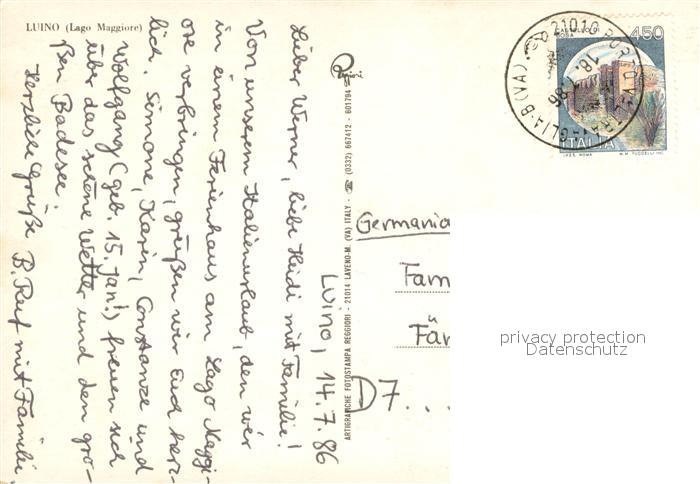 LUINO (Lago Maggiore)
Luino, 14.7.86
Lieber Werner, liebe Heidi mit Familie!
Von unserem Italienurlaub, den wir
in einem Ferienhaus am Lago Maggi-
ore verbringen, grüßen wir Euch herz-
lich. Simone, Karin, Constanze und
Wolfgang (geb. 15. Jan!) freuen sich
über das schöne Wetter und den gro-
ßen Badesee.
Herzliche Grüße B. Reif mit Familie
ARTIGRAFICHE FOTOSTAMPA REGGIORI - 21014 LAVENO-M. (VA) ITALY - ☎ (0332) 667412 - 601794
Germania
Fam
Fär
D7...
450
CASTELLO DI
ITALIA
I.P.Z.S. ROMA
M.M. TUCCELLI INC.
21010 PORTO V
GLIA-B (VA)
privacy protection
Datenschutz